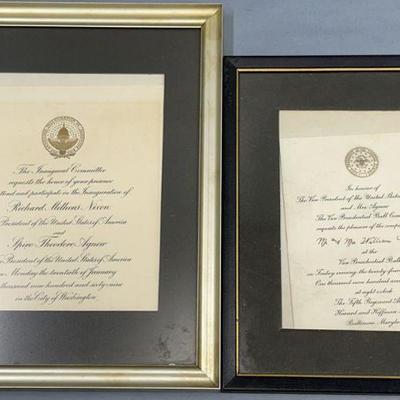 The Inaugural Committee
requests the honor of your presence
attend and participate in the Inauguration of
Richard Milhous Nixon
President of the United States of America
and
Spiro Theodore Agnew
President of the United States of America
Monday the twentieth of January
thousand nine hundred and sixty-nine
in the City of Washington
In honour of
The Vice President of the United States
and Mrs. Agnew
The Vice Presidential Ball
requests the pleasure of the company
Mr & Mrs
at the
Vice Presidential Ball
on Friday evening the twenty
One thousand nine hundred
at eight o'clock
The Fifth Regiment
Howard and Hoffman
Baltimore, Maryland